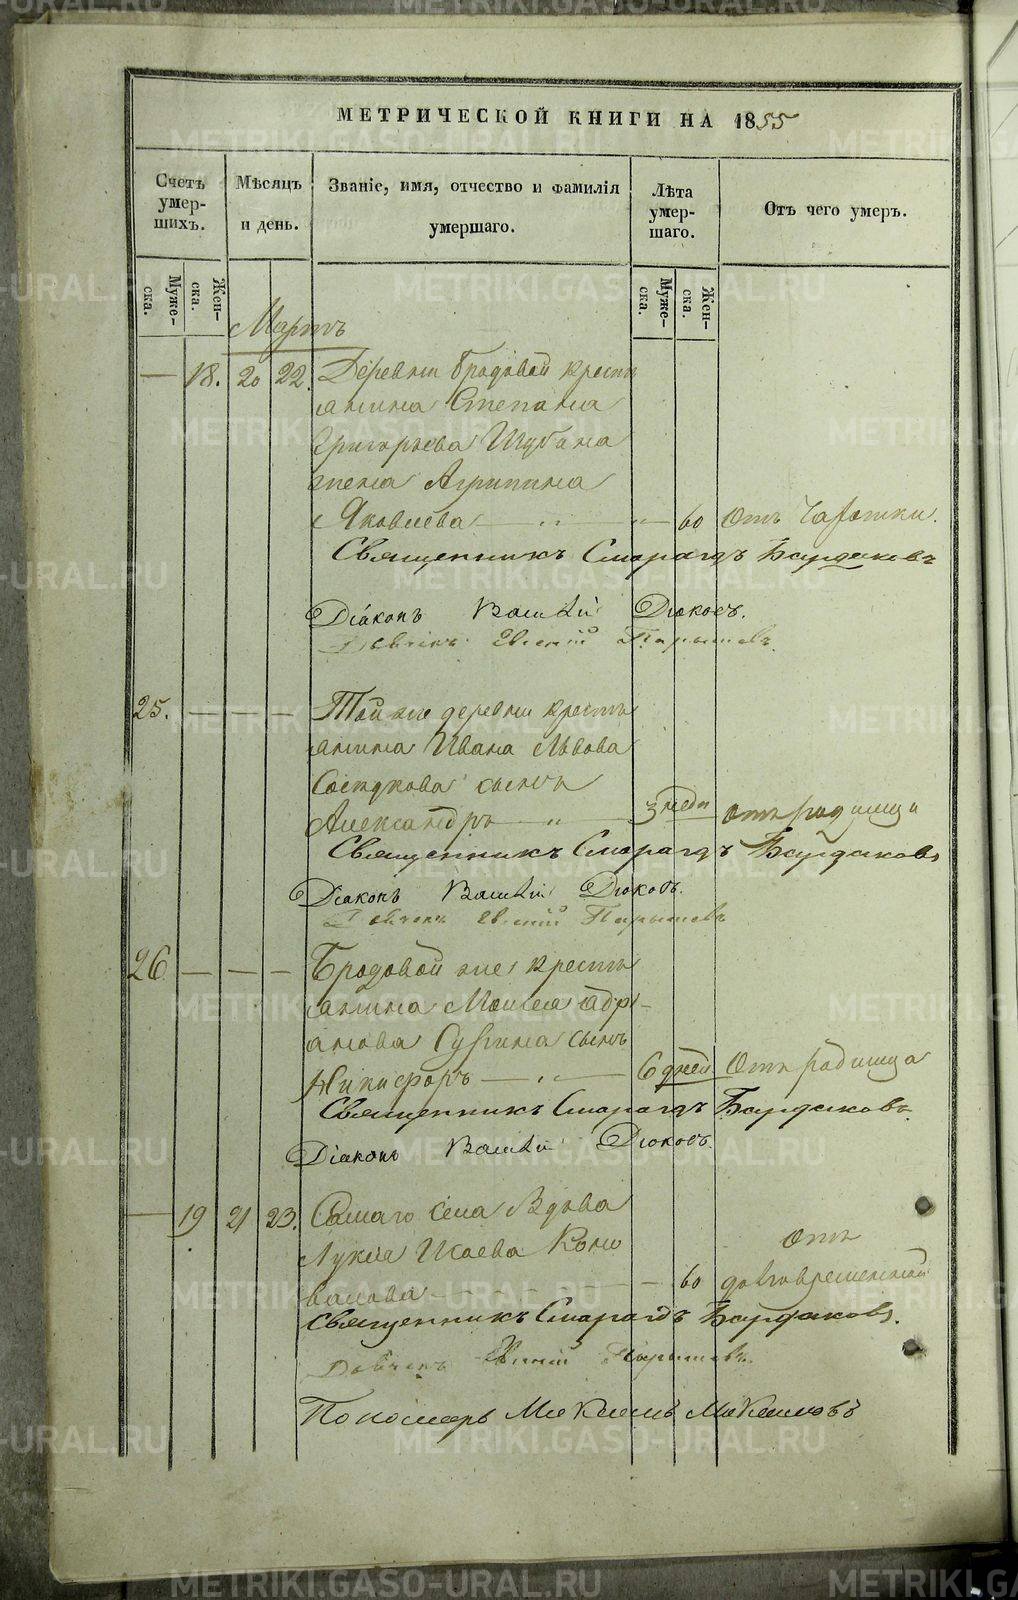 МЕТРИЧЕСКОЙ КНИГИ НА 1855
Счетъ умер-шихъ.
Мѣсяцъ и день.
Званіе, имя, отчество и фамилія умершаго.
Лѣта умер-шаго.
Отъ чего умеръ.
Муже-ска.
Жен-ска.
Муже-ска.
Жен-ска.
Мартъ
— 18. 20 22. Деревни Бродовой кресть
янина Степана
Григорьева Шубина
жена Агрипина
Яковлева — „ „ — 60 Отъ чахотки.
Священникъ Смарагдъ Бардаковъ
Діаконъ Василій Дюковъ.
Дьячекъ Евгеній Парышевъ.
25. — — — Той же деревни кресть
янина Ивана Львова
сынъ
Александръ — „ — 3 недѣли отъ родимца
Священникъ Смарагдъ Бардаковъ
Діаконъ Василій Дюковъ.
Дьячекъ Евгеній Парышевъ
26 — — — Бродовой же кресть
янина Моисея Адрі-
анова сынъ
Никифоръ — „ — 6 дней Отъ родимца
Священникъ Смарагдъ Бардаковъ.
Діаконъ Василій Дюковъ.
— 19 21 23. Самаго села Вдова
Лукия Исаева Коно
валова — — — — 60 Отъ
долговременной
Священникъ Смарагдъ Бардаковъ.
Дьячекъ Евгеній Парышевъ.
Пономарь
METRIKI.GASO-URAL.RU